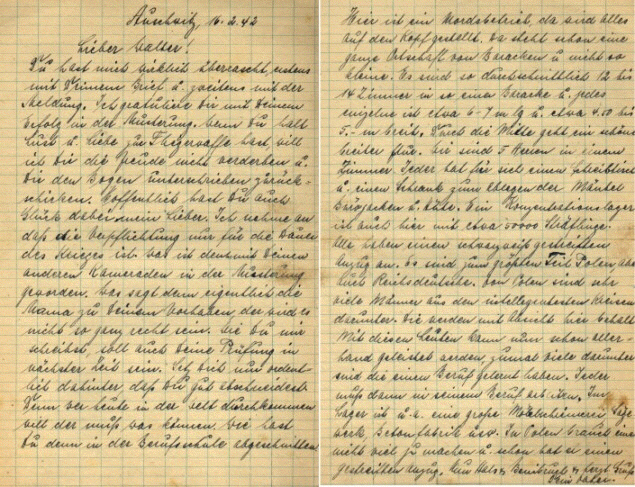 Auschwitz, 16.2.42
Lieber Walter!
Du hast mich wirklich überrascht, erstens
mit Deinem Brief u. zweitens mit der
Meldung. Ich gratuliere Dir mit Deinem
Erfolg in der Musterung. Wenn Du halt
Lust u. Liebe zur Fliegerwaffe hast, will
ich Dir die Freude nicht verderben u.
Dir den Bogen unterschrieben zurück-
schicken. Hoffentlich hast Du auch
Glück dabei mein Lieber. Ich nehme an
daß die Verpflichtung nur für die Dauer
des Krieges ist. Was ist denn mit Deinen
anderen Kameraden in der Musterung
geworden. Was sagt denn eigentlich die
Mama zu Deinem Vorhaben, der wird es
nicht so ganz recht sein. Wie Du mir
schreibst, soll auch Deine Prüfung in
nächster Zeit sein. Ich bitt nur
dahinter, daß Du gut abschneidest.
Denn wer heute in der Welt durchkommen
will der muß was können. Wie hast
Du denn in der Berufsschule abgeschnitten
Hier ist ein Mordsbetrieb, da wird alles
auf den Kopf gestellt. Da steht schon eine
ganze Ortschaft von Baracken u. nicht so
kleine. Es sind so durchschnittlich 12 bis
14 Zimmer in so einer Baracke u. jedes
einzelne ist etwa 6-7 m lg u. etwa 4.50 bis
5.- m breit. Durch die Mitte geht ein schöner
breiter Flur. Wir sind 5 Herren in einem
Zimmer. Jeder hat für sich einen Schreibtisch
u. einen Schrank zum Ablegen der Mäntel
u. Hüte. Ein Konzentrationslager
ist auch hier mit etwa Häftlinge.
Alle haben einen schwarzweiß gestreiften
Anzug an. Es sind zum größten Teil Polen, aber
auch Reichsdeutsche. Von Polen sind sehr
viele Männer aus den intelligentesten Kreisen
darunter. Die werden mit Absicht hier behalten
Mit diesen Leuten kann nun schon aller-
hand geleistet werden, zumal viele darunter
sind die einen Beruf gelernt haben. Jeder
muß dann in seinem Beruf arbeiten. Im
Lager ist u.a. eine große Säge-
werk, Betonfabrik usw. In Polen braucht einer
nicht viel zu machen u. schon hat er einen
gestreiften Anzug. Nun Hals- u. Beinbruch u. herzl. Gruß
Dein Vater.